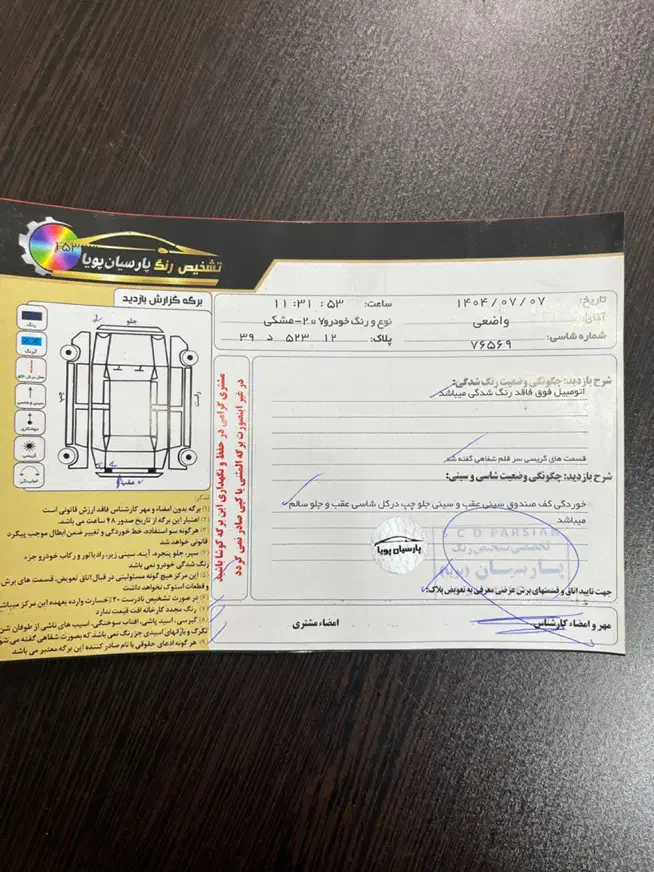 تشخیص رنگ پارسیان پویا
تاریخ: ۱۴۰۴/۰۷/۰۷
ساعت: ۱۱:۳۱:۵۳
آقای: واضعی
نوع و رنگ خودرو: ۲۰۷-مشکی
شماره شاسی: ۷۶۵۶۹
پلاک: ۱۲ ۵۲۳ د ۳۹
شرح بازدید: چگونگی وضعیت رنگ شدگی:
اتومبیل فوق فاقد رنگ شدگی میباشد
قسمت های گریسی سر قلم شفاهی گفته شد
شرح بازدید: چگونگی وضعیت شاسی و سینی:
خوردگی کف صندوق سینی عقب و سینی جلو چپ درکل شاسی عقب و جلو سالم
میباشد
S C D PARSIAN
تخصصی تشخیص رنگ
پارسیان (پویا)
پارسیان پویا
جهت تایید اتاق و قسمتهای برش عزتی معرفی به تعویض پلاک:
مهر و امضاء کارشناس
امضاء مشتری
مشتری گرامی در حفظ و نگهداری این برگه کوشا باشید
در غیر اینصورت برگه المثنی یا کپی صادر نمی گردد
برگه گزارش بازدید
جلو
چپ
راست
عقب
رنگ
آبرنگ
تذکر:
۱) برگه بدون امضاء و مهر کارشناس فاقد ارزش قانونی است
۲) اعتبار این برگه از تاریخ صدور ۴۸ ساعت می باشد.
۳) هرگونه سوء استفاده، خط خوردگی و تغییر ضمن ابطال موجب پیگرد
قانونی خواهد شد
۴) سپر، جلو پنجره، آینه، سینی زیر، رادیاتور و رکاب خودرو جزء
رنگ شدگی خودرو نمی باشد
۵) این مرکز هیچ گونه مسئولیتی در قبال اتاق تعویض، قسمت های برش
و قطعات استوک نخواهد داشت
۶) در صورت تشخیص نادرست ۲۰٪ خسارت وارده بعهده این مرکز میباشد
۷) رنگ مجدد کارخانه افت قیمت ندارد
۸) گیرسی، اسید پاشی، آفتاب سوختگی، آسیب های ناشی از طوفان شن
تگرگ و بارانهای اسیدی جز رنگ نمی باشد که بصورت شفاهی گفته می شود
۹) هر گونه ادعای حقوقی با نام صادر کننده این برگه معتبر می باشد